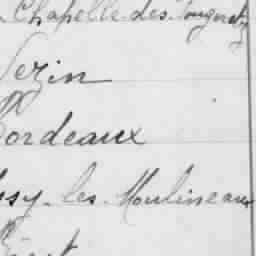 Chapelle des Fougeretz
Vezin
Bordeaux
ssy les Moulineaux